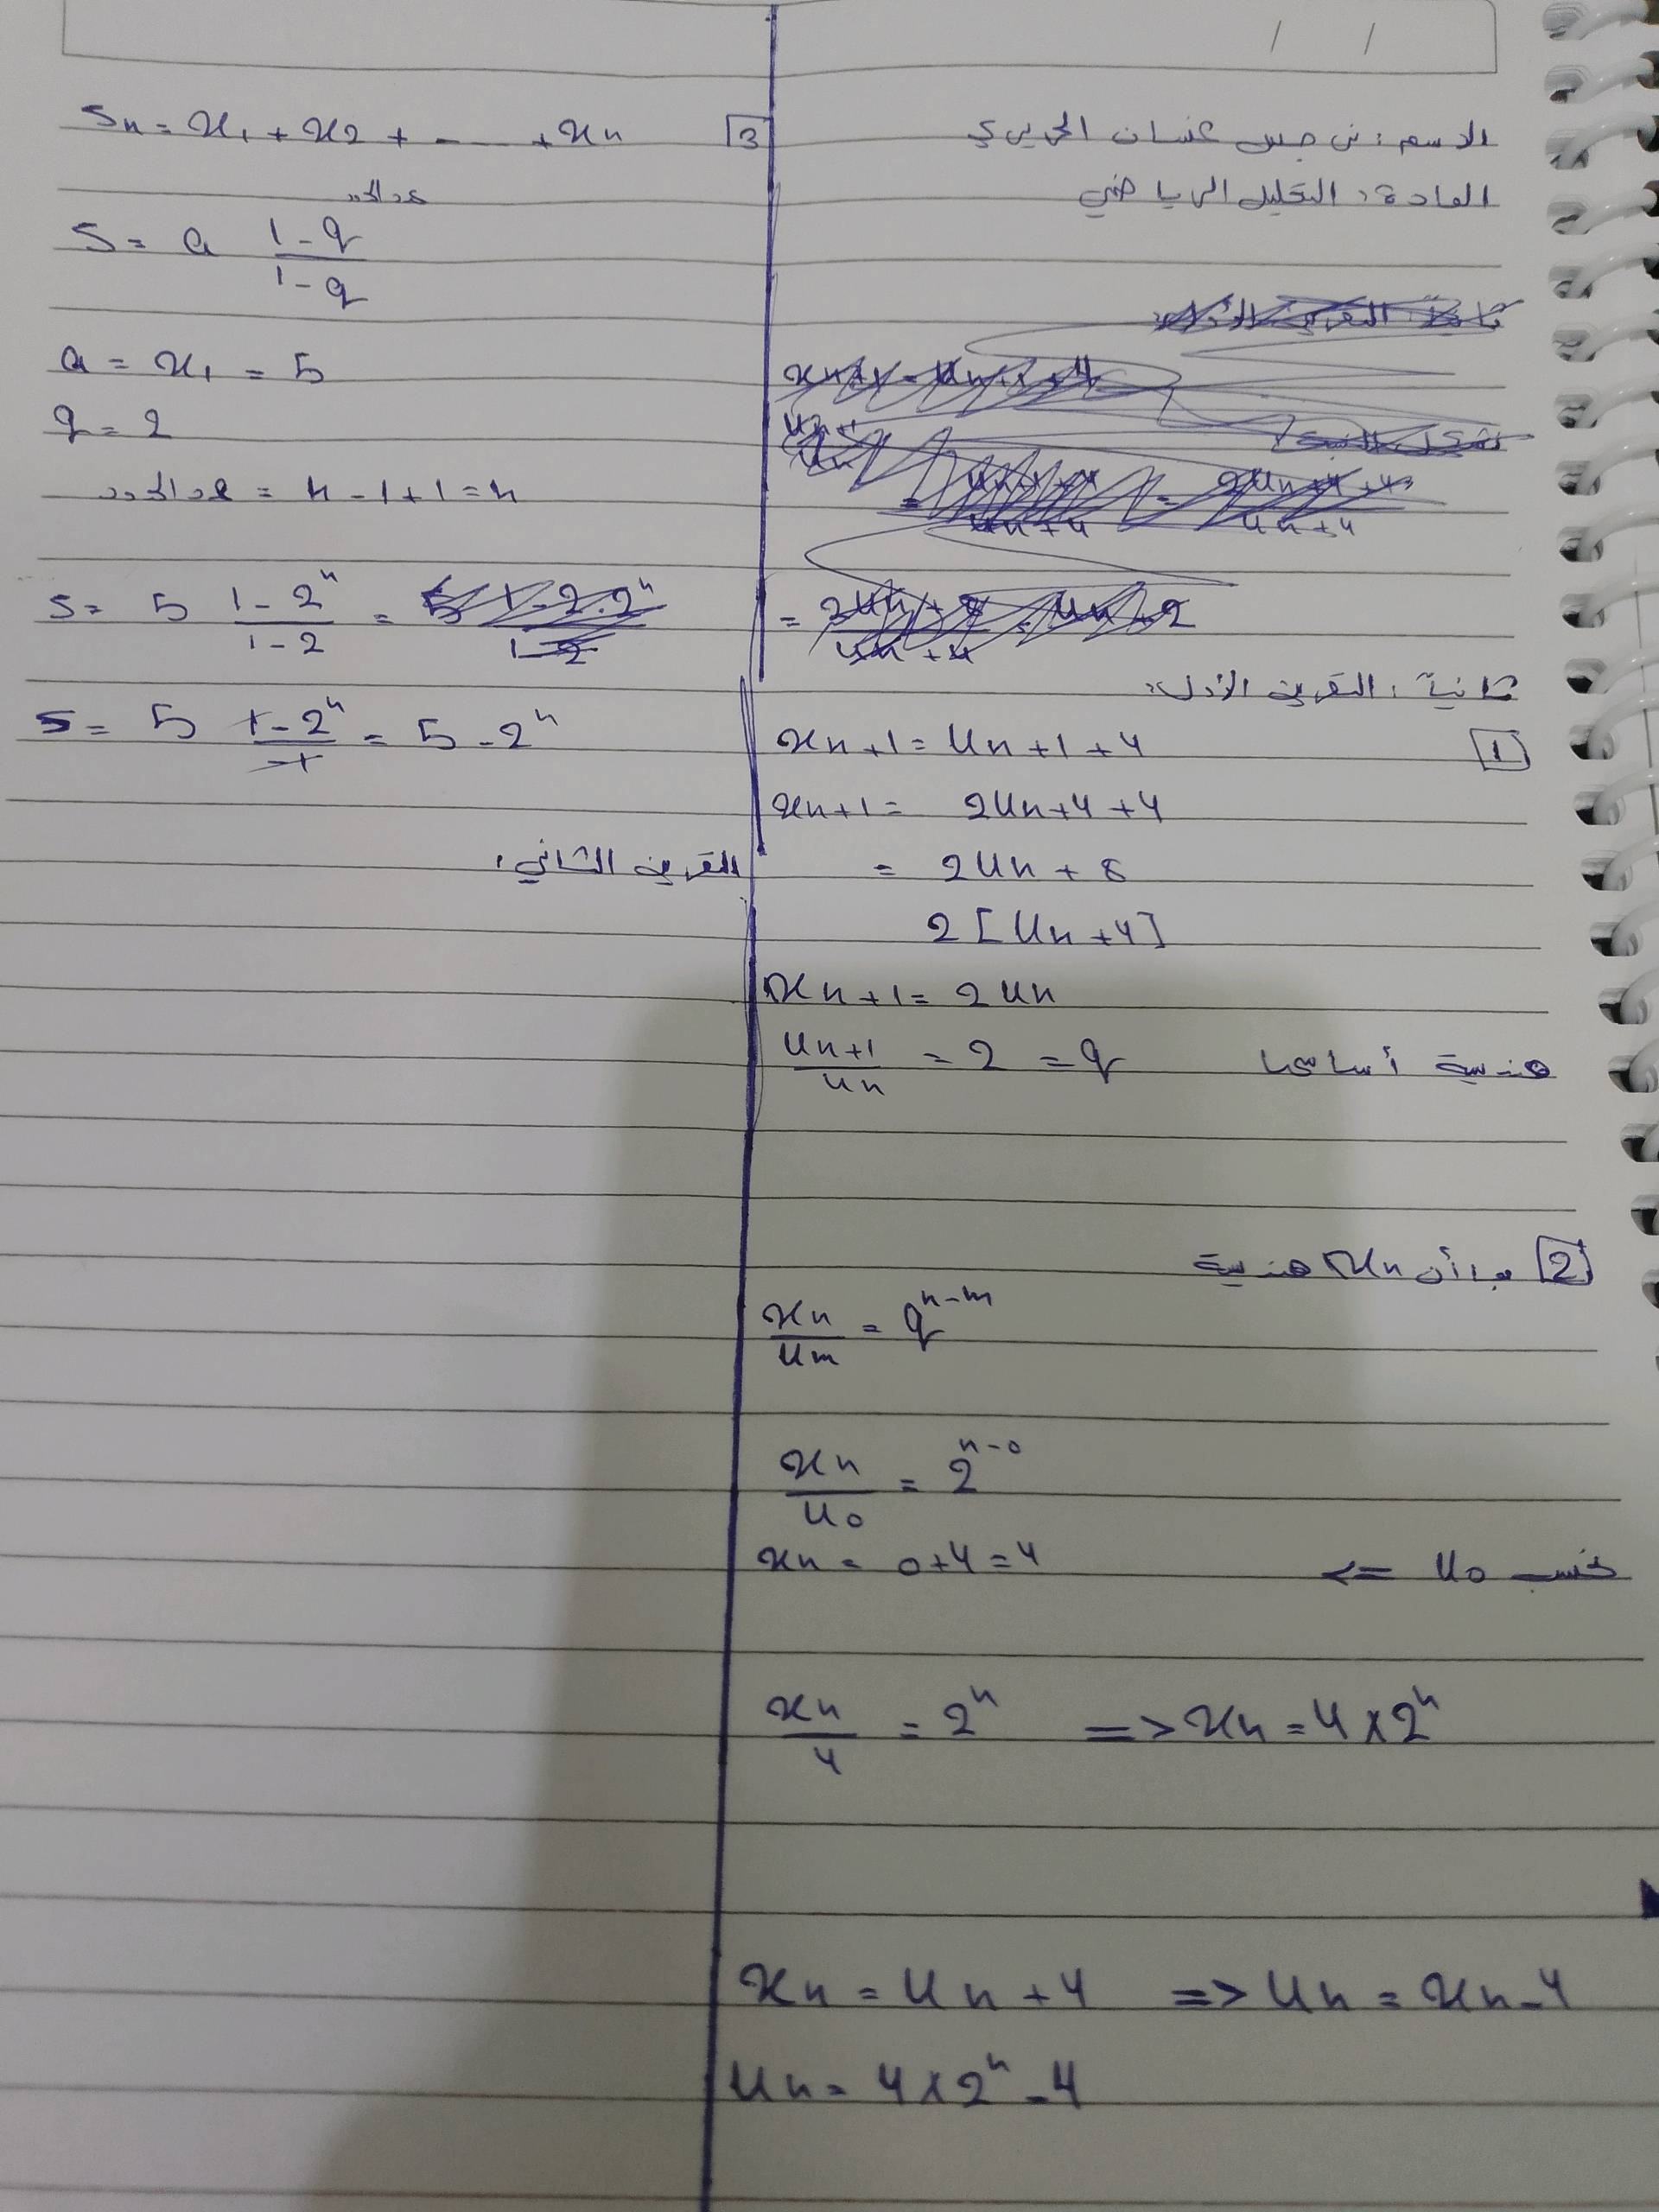 / /
الاسم: نرجس غسان الحريري
المادة: التحليل الرياضي
ثانية: التمرين الأول:
1
xn+1 = Un+1 + 4
xn+1 = 2Un+4 +4
= 2Un + 8
2 [Un +4]
xn+1 = 2 Un
Un+1 / Un = 2 = q هندسية أساسها
2 بما أن xn هندسية
xn / Um = q^n-m
xn / U0 = 2^n-0
نحسب U0 <=
xn = 0+4 = 4
xn / 4 = 2^n => xn = 4 x 2^n
xn = Un + 4 => Un = xn - 4
Un = 4 x 2^n - 4
3 Sn = x1 + x2 + - - - + xn
عدد الحدود
S = a 1 - q / 1 - q
a = x1 = 5
q = 2
عدد الحدود = n - 1 + 1 = n
S = 5 1 - 2^n / 1 - 2 =
S = 5 1 - 2^n / -1 = 5 - 2^n
التمرين الثاني: